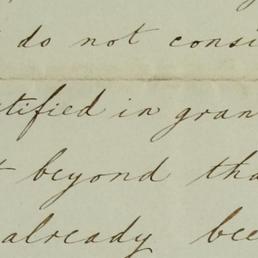 do not consi
tified in gran
beyond tha
already bee